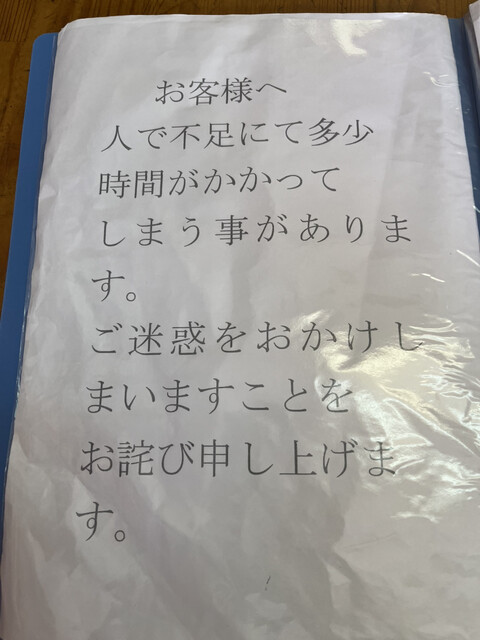 お客様へ
人で不足にて多少
時間がかかって
しまう事がありま
す。
ご迷惑をおかけし
まいますことを
お詫び申し上げま
す。